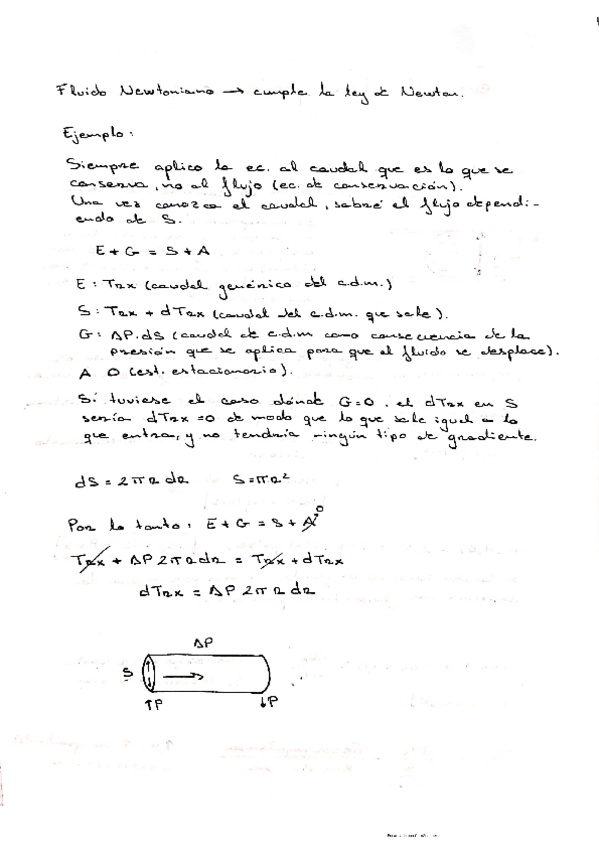 Fluido Newtoniano → cumple la ley de Newton.
Ejemplo:
Siempre aplico la ec. al caudal que es lo que se
conserva, no al flujo (ec. de conservación).
Una vez conozca el caudal, sabré el flujo dependi-
endo de S.
E + G = S + A
E: Trx (caudal genérico del c.d.m.)
S: Trx + dTrx (caudal del c.d.m. que sale).
G: ΔP.dS (caudal de c.d.m como consecuencia de la
presión que se aplica para que el fluido se desplace).
A 0 (est. estacionario).
Si tuviese el caso dónde G=0, el dTrx en S
sería dTrx =0 de modo que lo que sale igual a lo
que entra, y no tendría ningún tipo de gradiente.
dS = 2πr dr S=πr²
Por lo tanto: E + G = S + A 0
Trx + ΔP 2πr dr = Trx + dTrx
dTrx = ΔP 2πr dr
ΔP
S
↑P ↓P